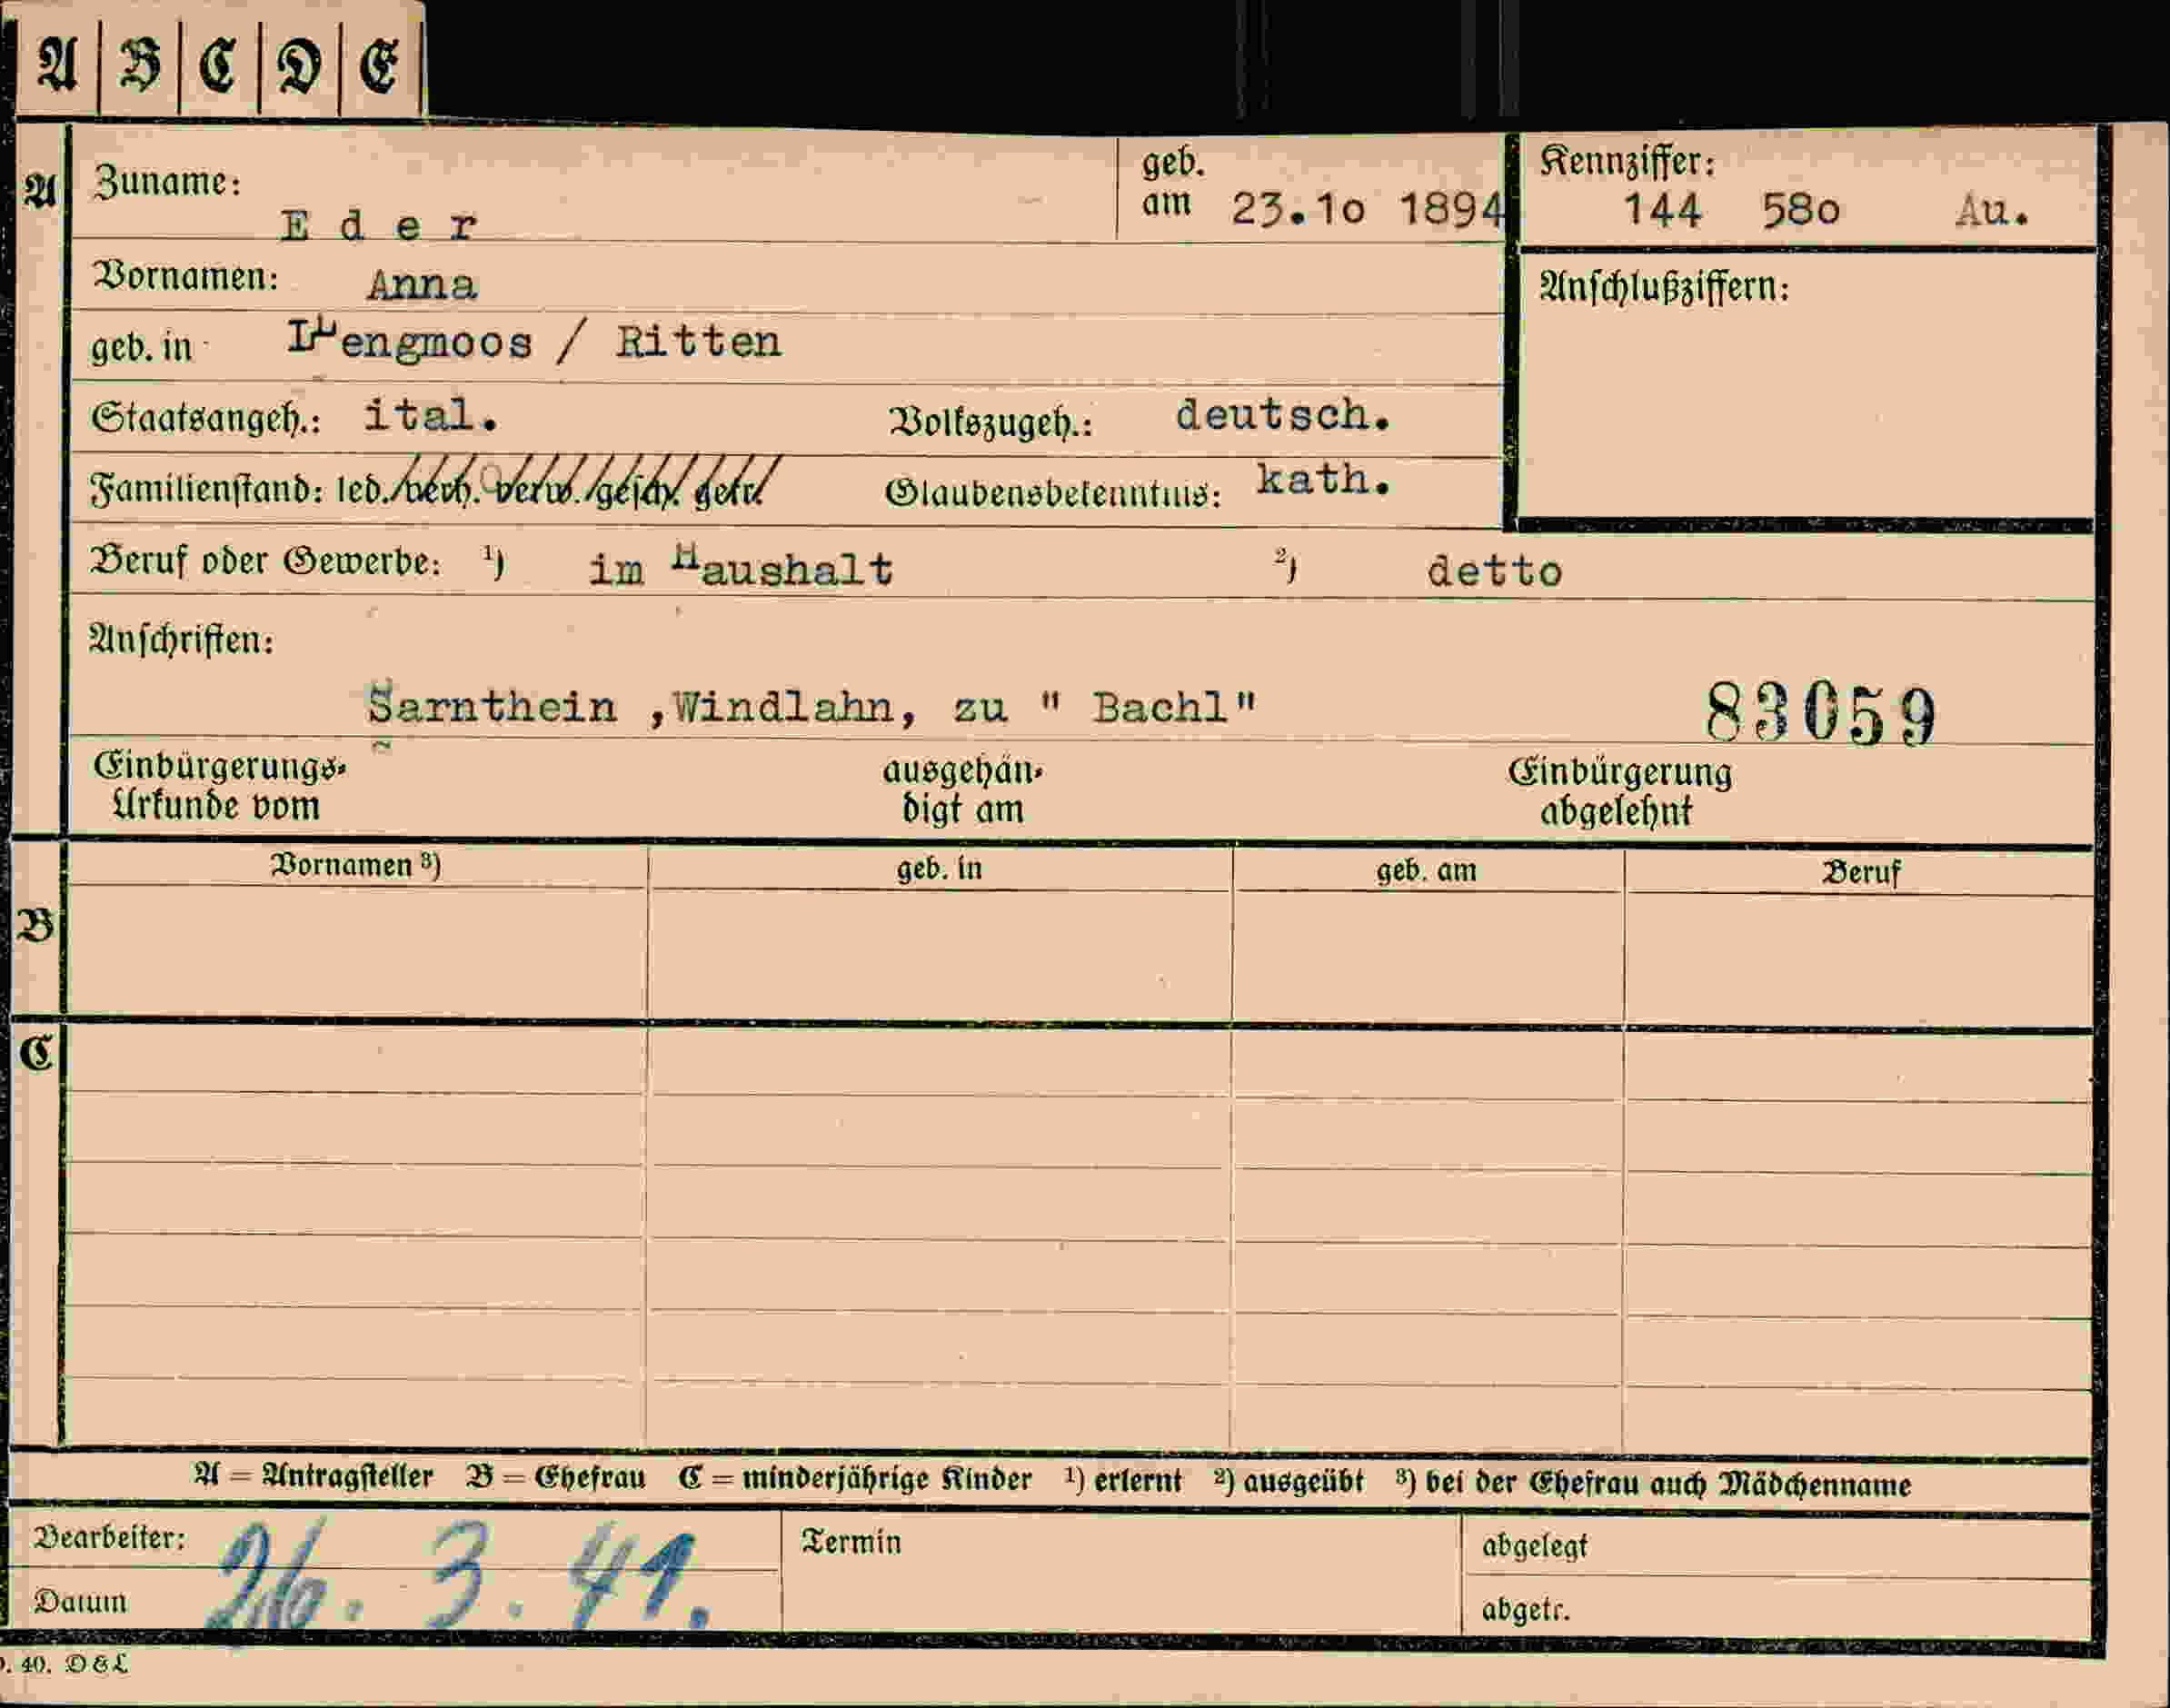 A B C D E
A
Zuname: Eder
geb. am 23.10 1894
Kennziffer: 144 580 Au.
Vornamen: Anna
Anschlußziffern:
geb. in Lengmoos / Ritten
Staatsangeh.: ital. Volkszugeh.: deutsch.
Familienstand: led. verh. verw. gesch. getr. Glaubensbekenntnis: kath.
Beruf oder Gewerbe: 1) im Haushalt 2) detto
Anschriften:
Sarnthein ,Windlahn, zu " Bachl" 83059
Einbürgerungs-
Urkunde vom
ausgehän-
digt am
Einbürgerung
abgelehnt
Vornamen 3) geb. in geb. am Beruf
B
C
A = Antragsteller B = Ehefrau C = minderjährige Kinder 1) erlernt 2) ausgeübt 3) bei der Ehefrau auch Mädchenname
Bearbeiter:
Datum 26. 3. 41.
Termin
abgelegt
abgetr.
40. D & L